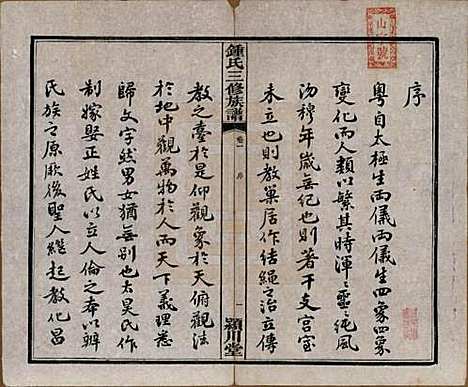 序
粤自太極生兩儀兩儀生四象四象
變化而人類以繁其時渾〻噩〻純風
沕穆年歲無紀也則著干支宮室
未立也則教巢居作結繩之治立傳
鍾氏三修族譜
卷一
序
一
潁川堂
教之臺於是仰觀象於天俯觀法
於地中觀萬物於人而天下義理悉
歸文字然男女猶無別也太昊氏作
制嫁娶正姓氏以立人倫之本以辨
民族之原厥後聖人繼起教化昌